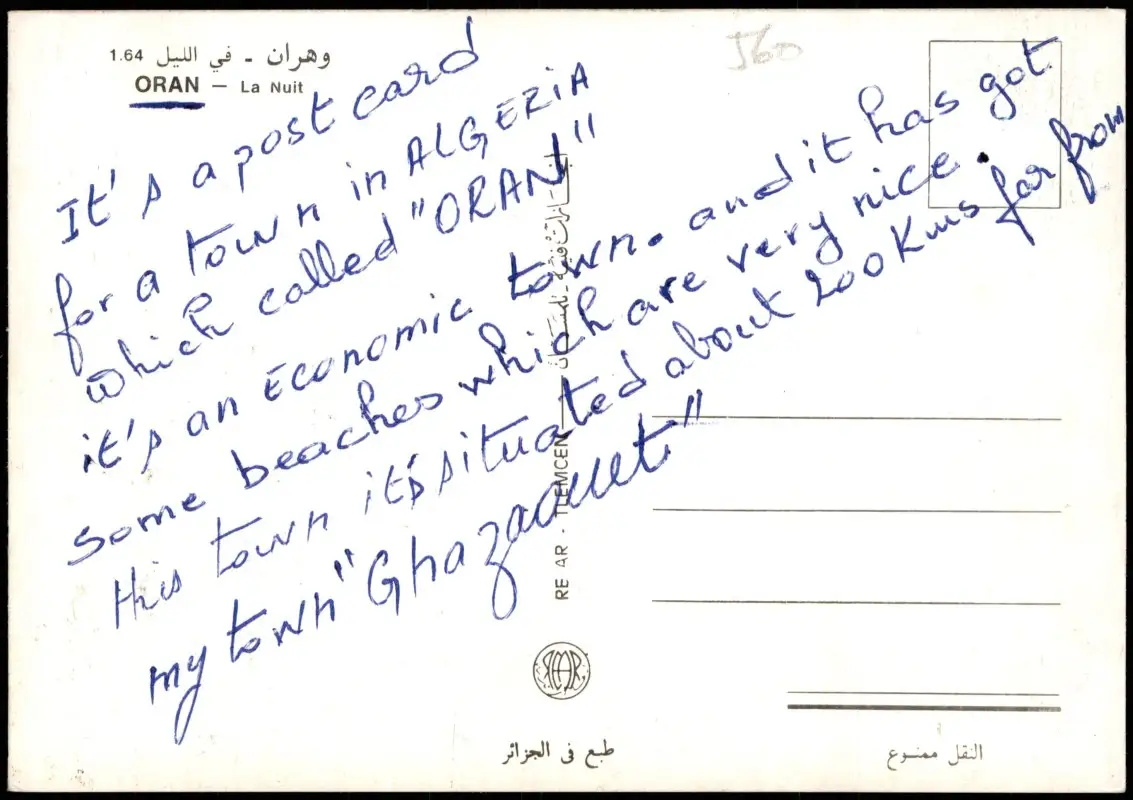 1.64 وهران - في الليل
ORAN — La Nuit
J60
It's a post card
for a town in ALGERiA
which called "ORAN"
it's an ECONOMIC town. and it has got
some beaches which are very nice.
this town it's situated about 200 Kms far from
my town "Ghazaouet"
RE AR - TLEMCEN
طبع في الجزائر
النقل ممنوع